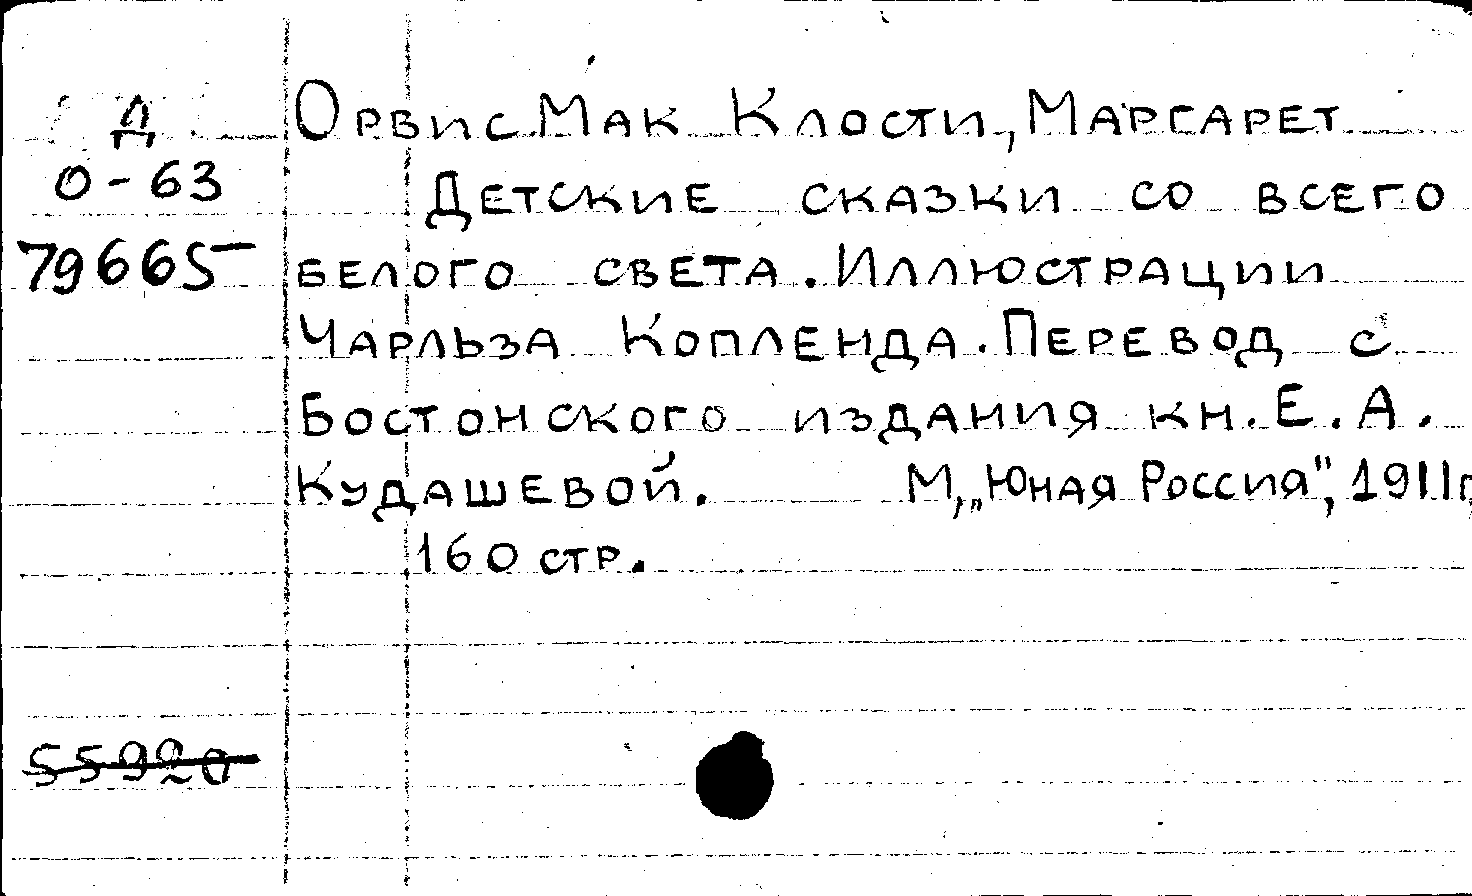 Д
О-63
79665
Орвис Мак Клости, Маргарет
Детские сказки со всего
белого света. Иллюстрации
Чарльза Копленда. Перевод с
Бостонского издания кн. Е. А.
Кудашевой. М, „Юная Россия", 1911г,
160 стр.
55920